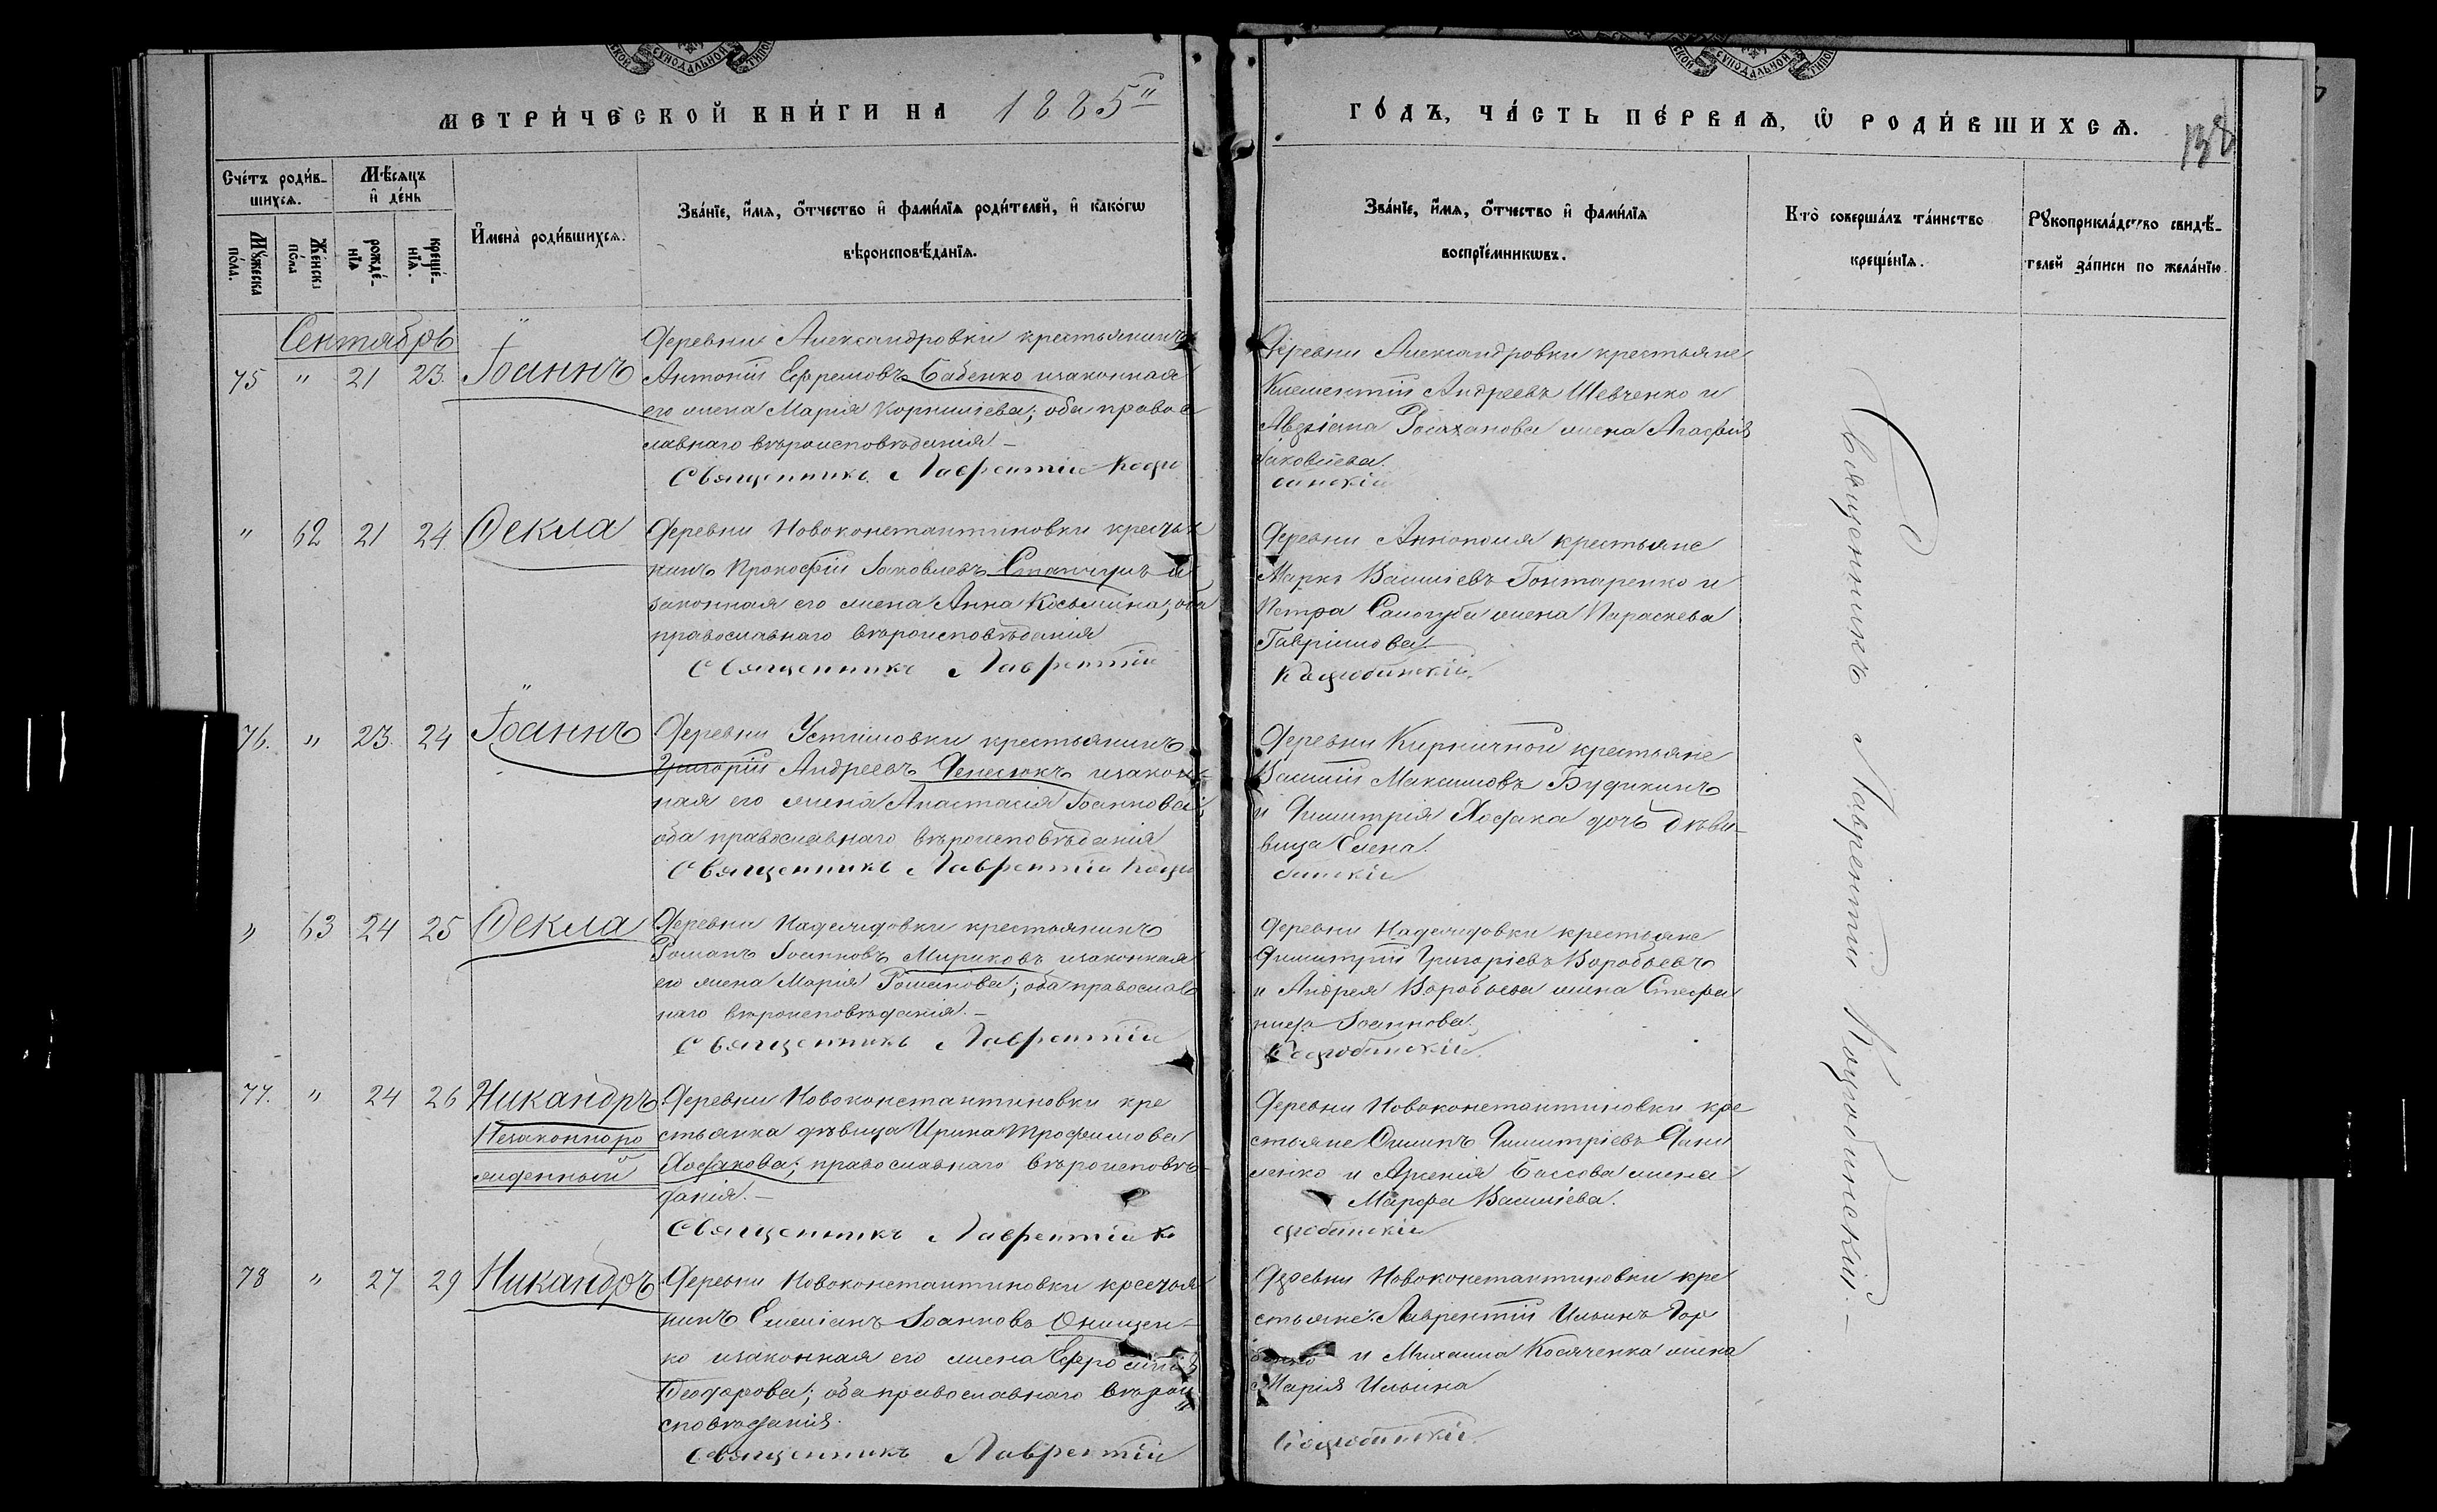 МЕТРИ́ЧЕСКОЙ КНИ́ГИ НА 1885й
ГО́ДЪ, ЧА́СТЬ ПЕ́РВАѦ, Ѡ РОДИ́ВШИХСѦ.
138
Сче́тъ роди́в-
шихсѧ.
Мѣ́сѧцъ
и де́нь
Мꙋ́жеска
по́ла.
Же́нска
по́ла
рожде́-
нїѧ
креще́-
нїѧ.
И҆мена̀ роди́вшихсѧ.
Зва́нїе, и҆́мѧ, ѻ҆́тчество и҆ фами́лїѧ роди́телей, и҆ како́гѡ
вѣроисповѣ́данїѧ.
Зва́нїе, и҆́мѧ, ѻ҆́тчество и҆ фами́лїѧ
воспрїе́мникѡвъ.
Кто̀ соверша́лъ та́инство
креще́нїѧ.
Рꙋкоприкла́дство свидѣ́-
телей за́писи по жела́нїю
Сентябрь
75 " 21 23. Іоаннъ
Деревни Александровки крестьянинъ
Антоній Ефремовъ Бабенко изаконная
его жена Марія Корнилієва; оба право
славнаго вѣроисповѣданія –
Священникъ Лаврентій Коцю
Деревни Александровки крестьяне
Климентій Андреевъ Шевченко и
жена Агафія
Іаковлева.
бинскій
" 62 21 24 Ѳекла
Деревни Новоконстантиновки крестья
нинъ Прокофій Іаковлевъ и
законная его жена Анна Косьмина; оба
православнаго вѣроисповѣданія
Священникъ Лаврентій
Деревни Аннополя крестьяне
Маркъ Василіевъ Гонтаренко и
Петра Самогуба жена Параскева
Гавріилова –
Коцюбинскій.
76. " 23. 24 Іоаннъ
Деревни Устимовки крестьянинъ
Григорій Андреевъ Денисюкъ изакон-
ная его жена Анастасія Іоаннова;
оба православнаго вѣроисповѣданія
Священникъ Лаврентій Коцю
Деревни Кирпичной крестьяне
Василій Максимовъ
и Димитрія Ходака дочь дѣви-
вица Елена.
бинскій
" 63 24 25 Ѳекла
Деревни Надеждовки крестьянинъ
Романъ Іоанновъ Мириковъ изаконная
его жена Марія Романова; оба православ
наго вѣроисповѣданія. –
Священникъ Лаврентій
Деревни Надеждовки крестьяне
Димитрій Григоріевъ Воробьевъ
и Андрея Воробьева жена Стефа
нида Іоаннова.
Коцюбинскій.
77. " 24 26 Никандръ
Незаконноро
жденный
Деревни Новоконстантиновки кре
стьянка дѣвица Ирина Трофимова
Ходакова; православнаго вѣроисповѣ-
данія. –
Священникъ Лаврентій Ко
Деревни Новоконстантиновки кре
стьяне Филипъ Димитріевъ Дани
ленко и Арсенія Бассова жена
Марфа Василіева.
цюбинскій
78 " 27 29 Никандръ
Деревни Новоконстантиновки крестья
нинъ Емеліанъ Іоанновъ Онищен-
ко изаконная его жена
Ѳеодорова; оба православнаго вѣрои
сповѣданія.
Священникъ Лаврентій
Деревни Новоконстантиновки кре
стьяне: Лаврентій Ильинъ Гор
и Михаила Косяченка жена
Марія Ильина
Коцюбинскій.
Священникъ Лаврентій Коцюбинскій. –